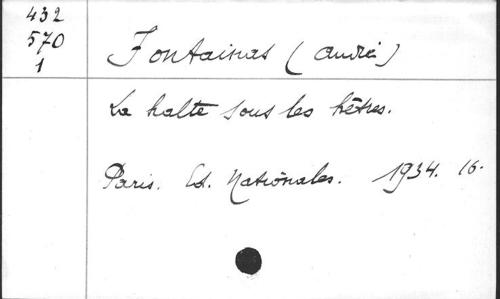 432
570
1
Fontainas (André)
La halte sous les hêtres.
Paris. Ed. Nationales. 1934. 16-